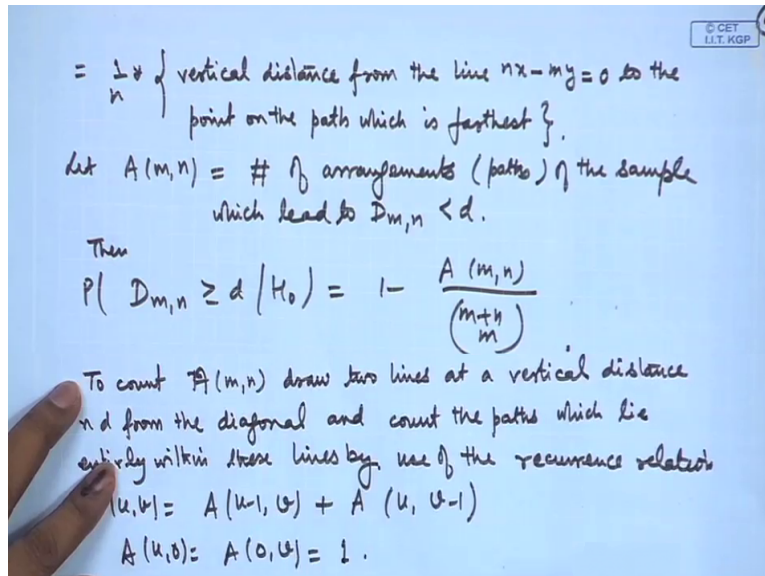 © CET
I.I.T. KGP
= 1/n * { vertical distance from the line nx - my = 0 to the
point on the path which is farthest }.
Let A(m,n) = # of arrangements (paths) of the sample
which lead to D_{m,n} < d.
Then
P( D_{m,n} ≥ d / H_0 ) = 1 - A(m,n) / \binom{m+n}{m}
To count A(m,n) draw two lines at a vertical distance
nd from the diagonal and count the paths which lie
entirely within these lines by use of the recurrence relation
(u,v) = A(u-1, v) + A(u, v-1)
A(u,0) = A(0,v) = 1.